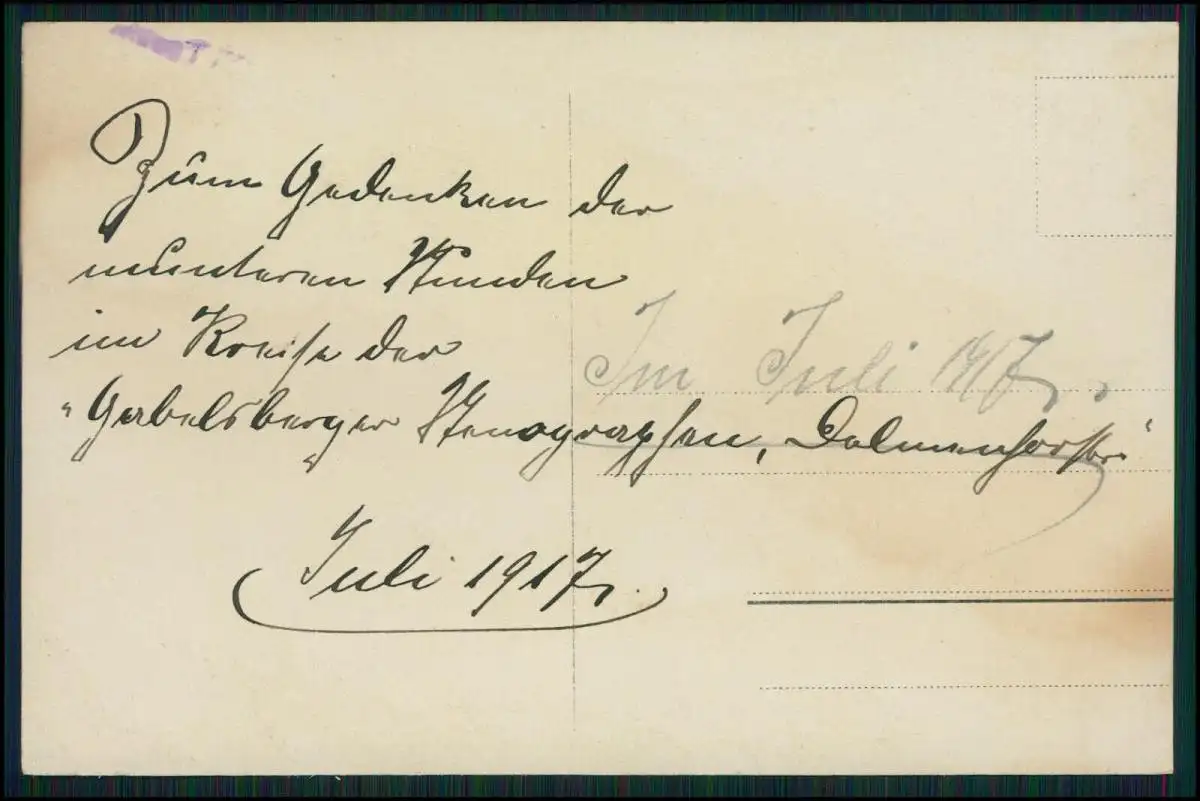 Zum Gedenken der
munteren Stunden
im Kreise der
„Gabelsberger Stenographen, Delmenhorst"
Juli 1917.
Im Juli 1917.